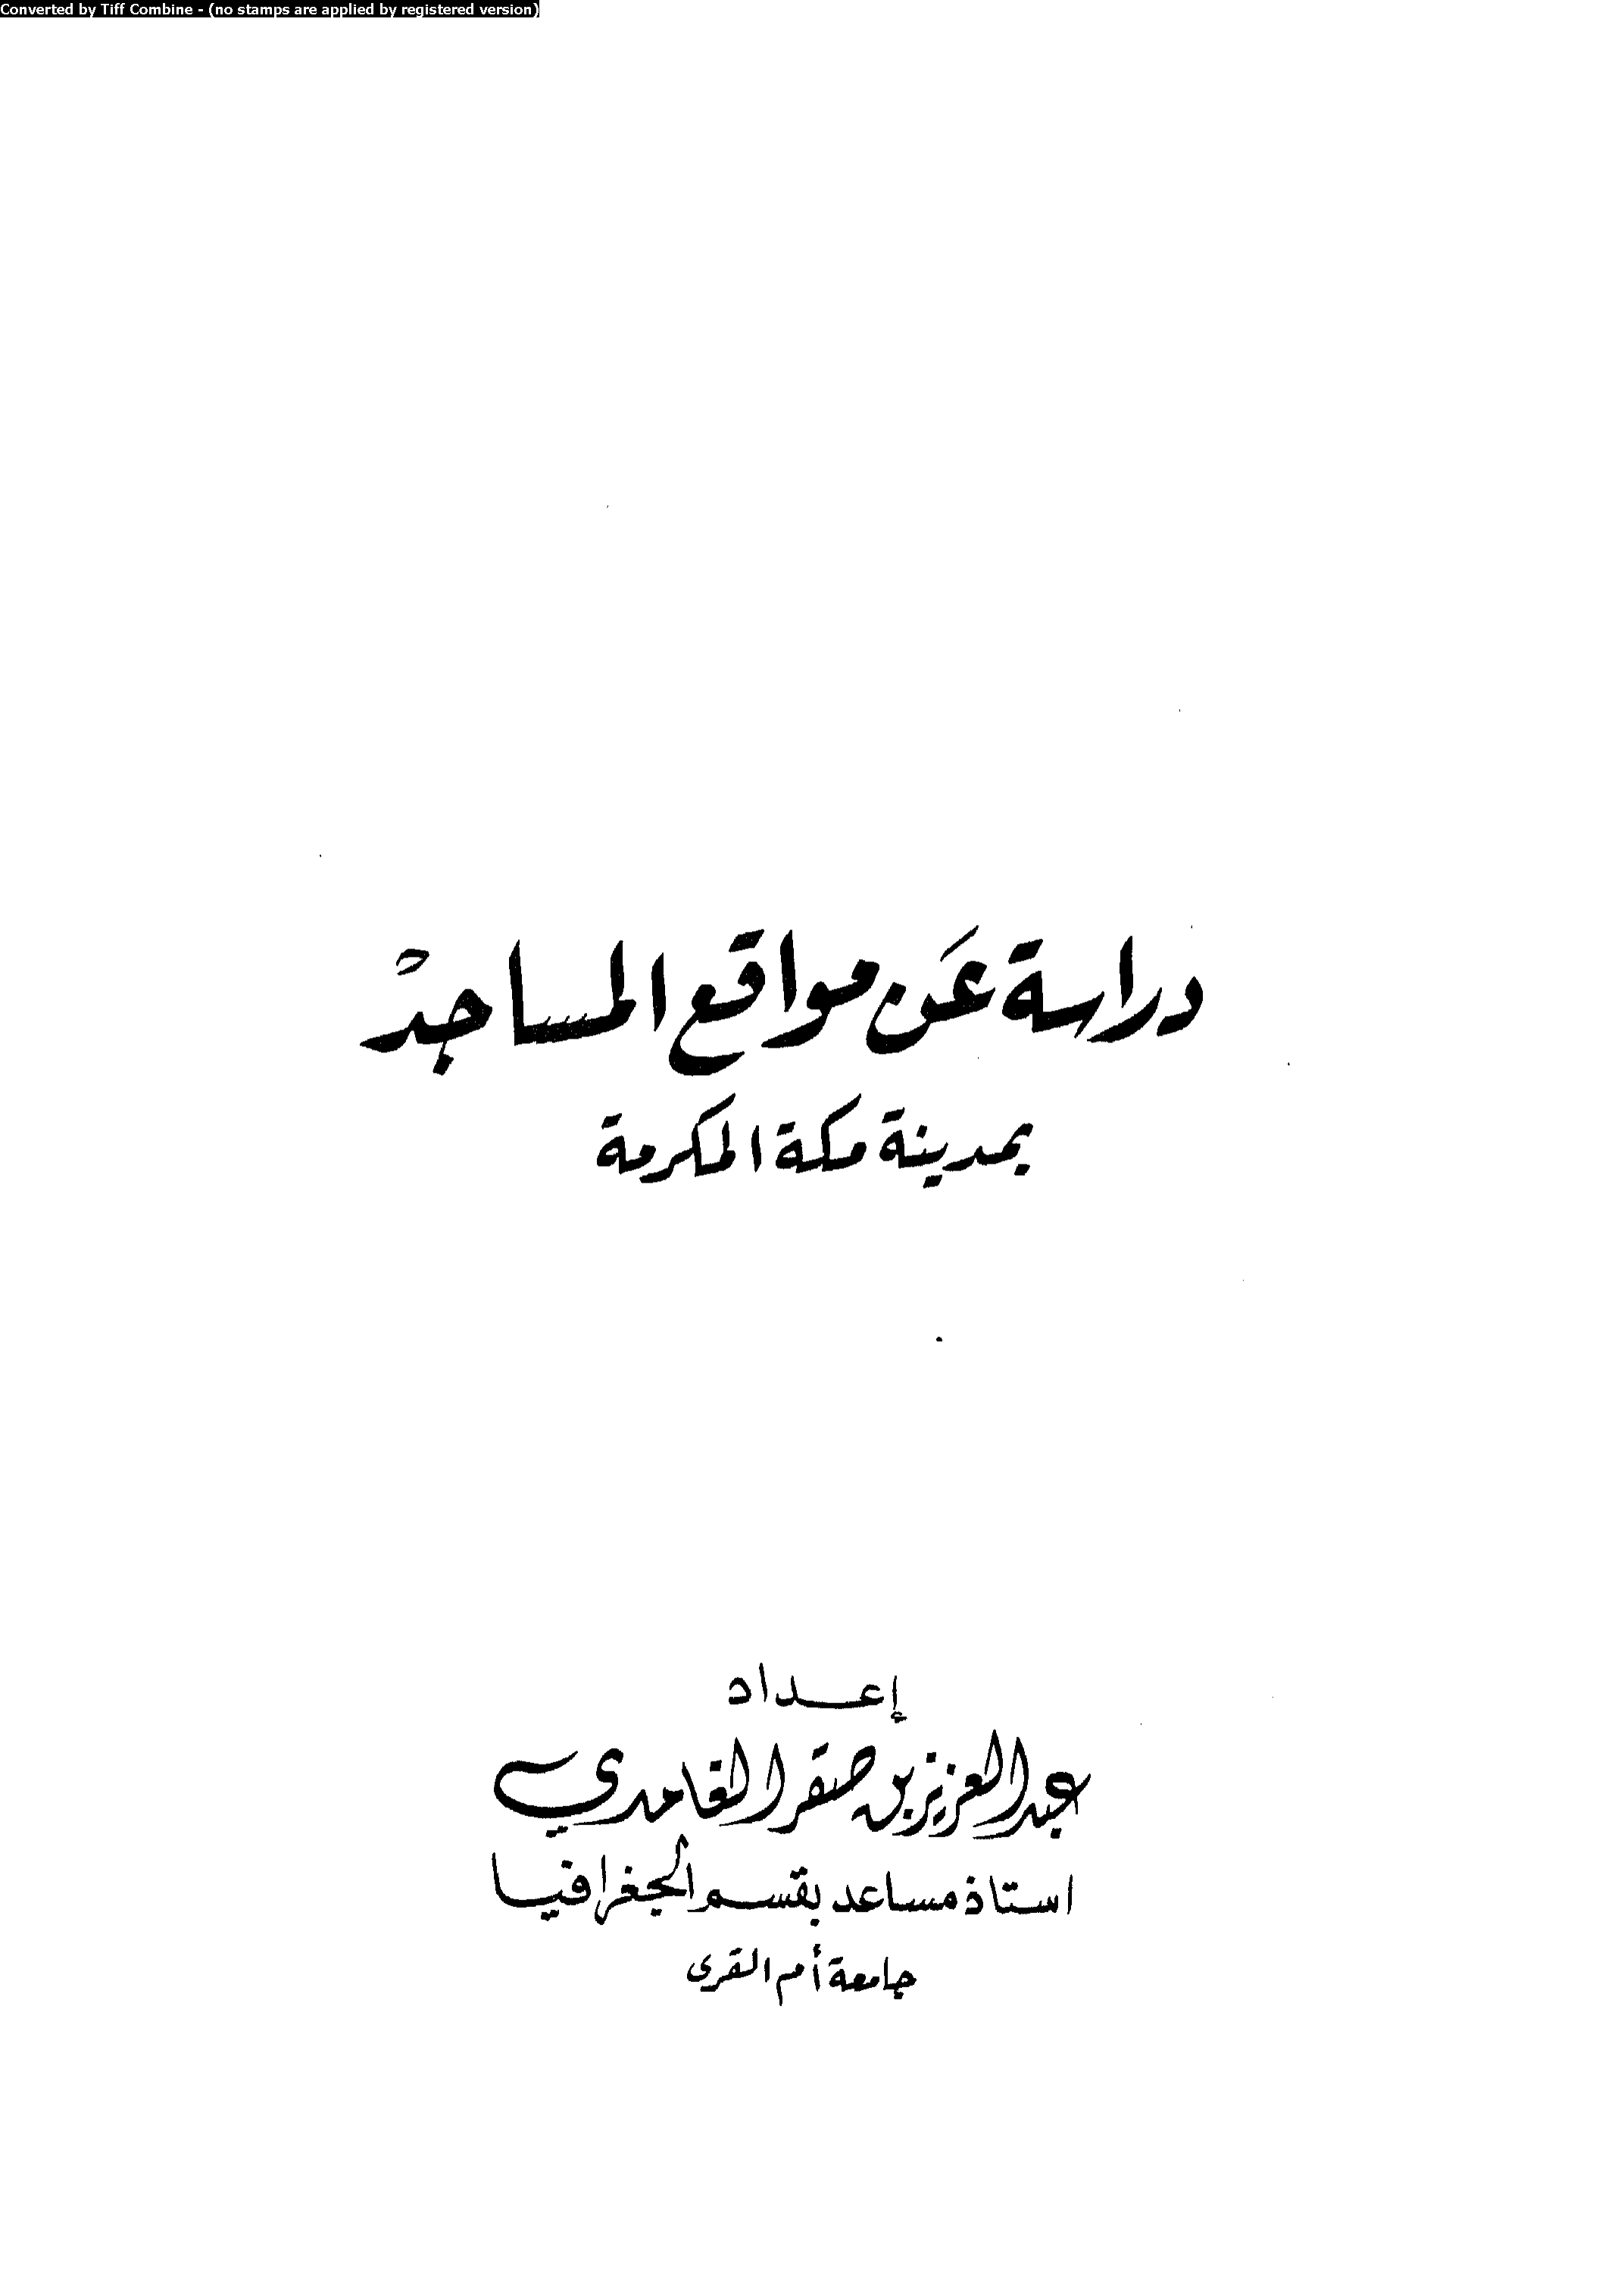 Converted by Tiff Combine - (no stamps are applied by registered version)
دراسة عَن مواقع المساجدْ
بمدينة مكة المكرمة
إعـداد
عبدالعزيز بن صقر الغامدي
استاذ مساعد بقسم الجغرافيا
جامعة أم القرى